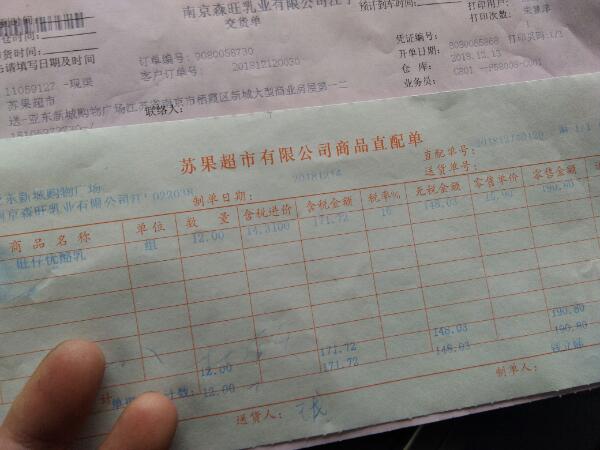 南京森旺乳业有限公司江宁
交货单
统计到车时间:
打印用户:
打印次数:
到时间:
仓时间:
货时间:
请填写日期及时间
订单编号: 9080058730
客户订单号: 201812120030
凭证编号: 8030065868 打印页码:1/1
开单日期: 2018.12.13
仓 库:
业务员:
11059127 -现渠
苏果超市
送-亚东新城购物广场江苏省南京市栖霞区新城大型商业房屋第一二
联络人:
苏果超市有限公司商品直配单
直配单号:
送货单号:
亚东新城购物广场
南京森旺乳业有限公司江 022038
制单日期: 20181214
商品名称 单位 数量 含税进价 含税金额 税率% 无税金额 零售单价 零售金额
旺仔优酪乳 组 12.00 14.3100 171.72 16 148.03 15.90 190.80
12.00 171.72 148.03 190.80
计数: 12.00 171.72 148.03 190.80
送货人:
制单人: